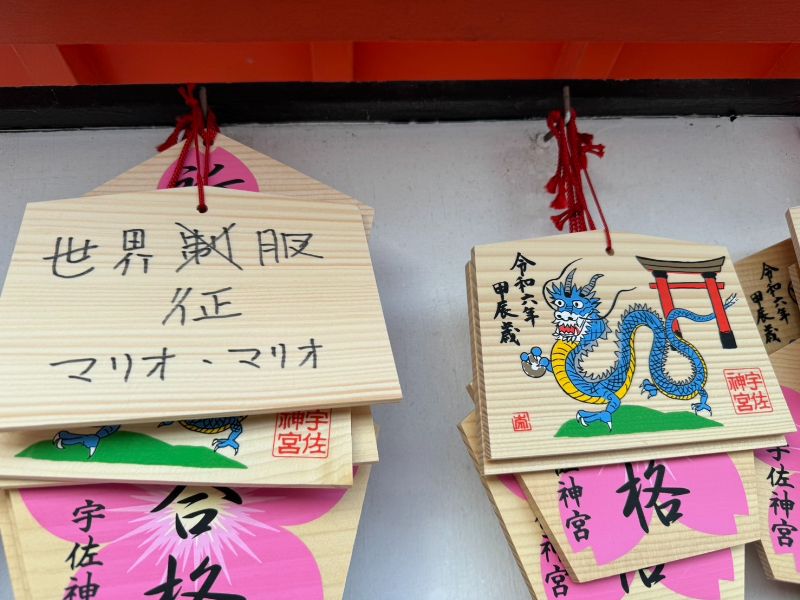 世界制服
征
マリオ・マリオ
宇佐
神宮
合
格
宇佐神
令和六年
甲辰歳
宇佐
神宮
格
佐神宮
神宮
令和六年
甲辰歳
宇佐神宮